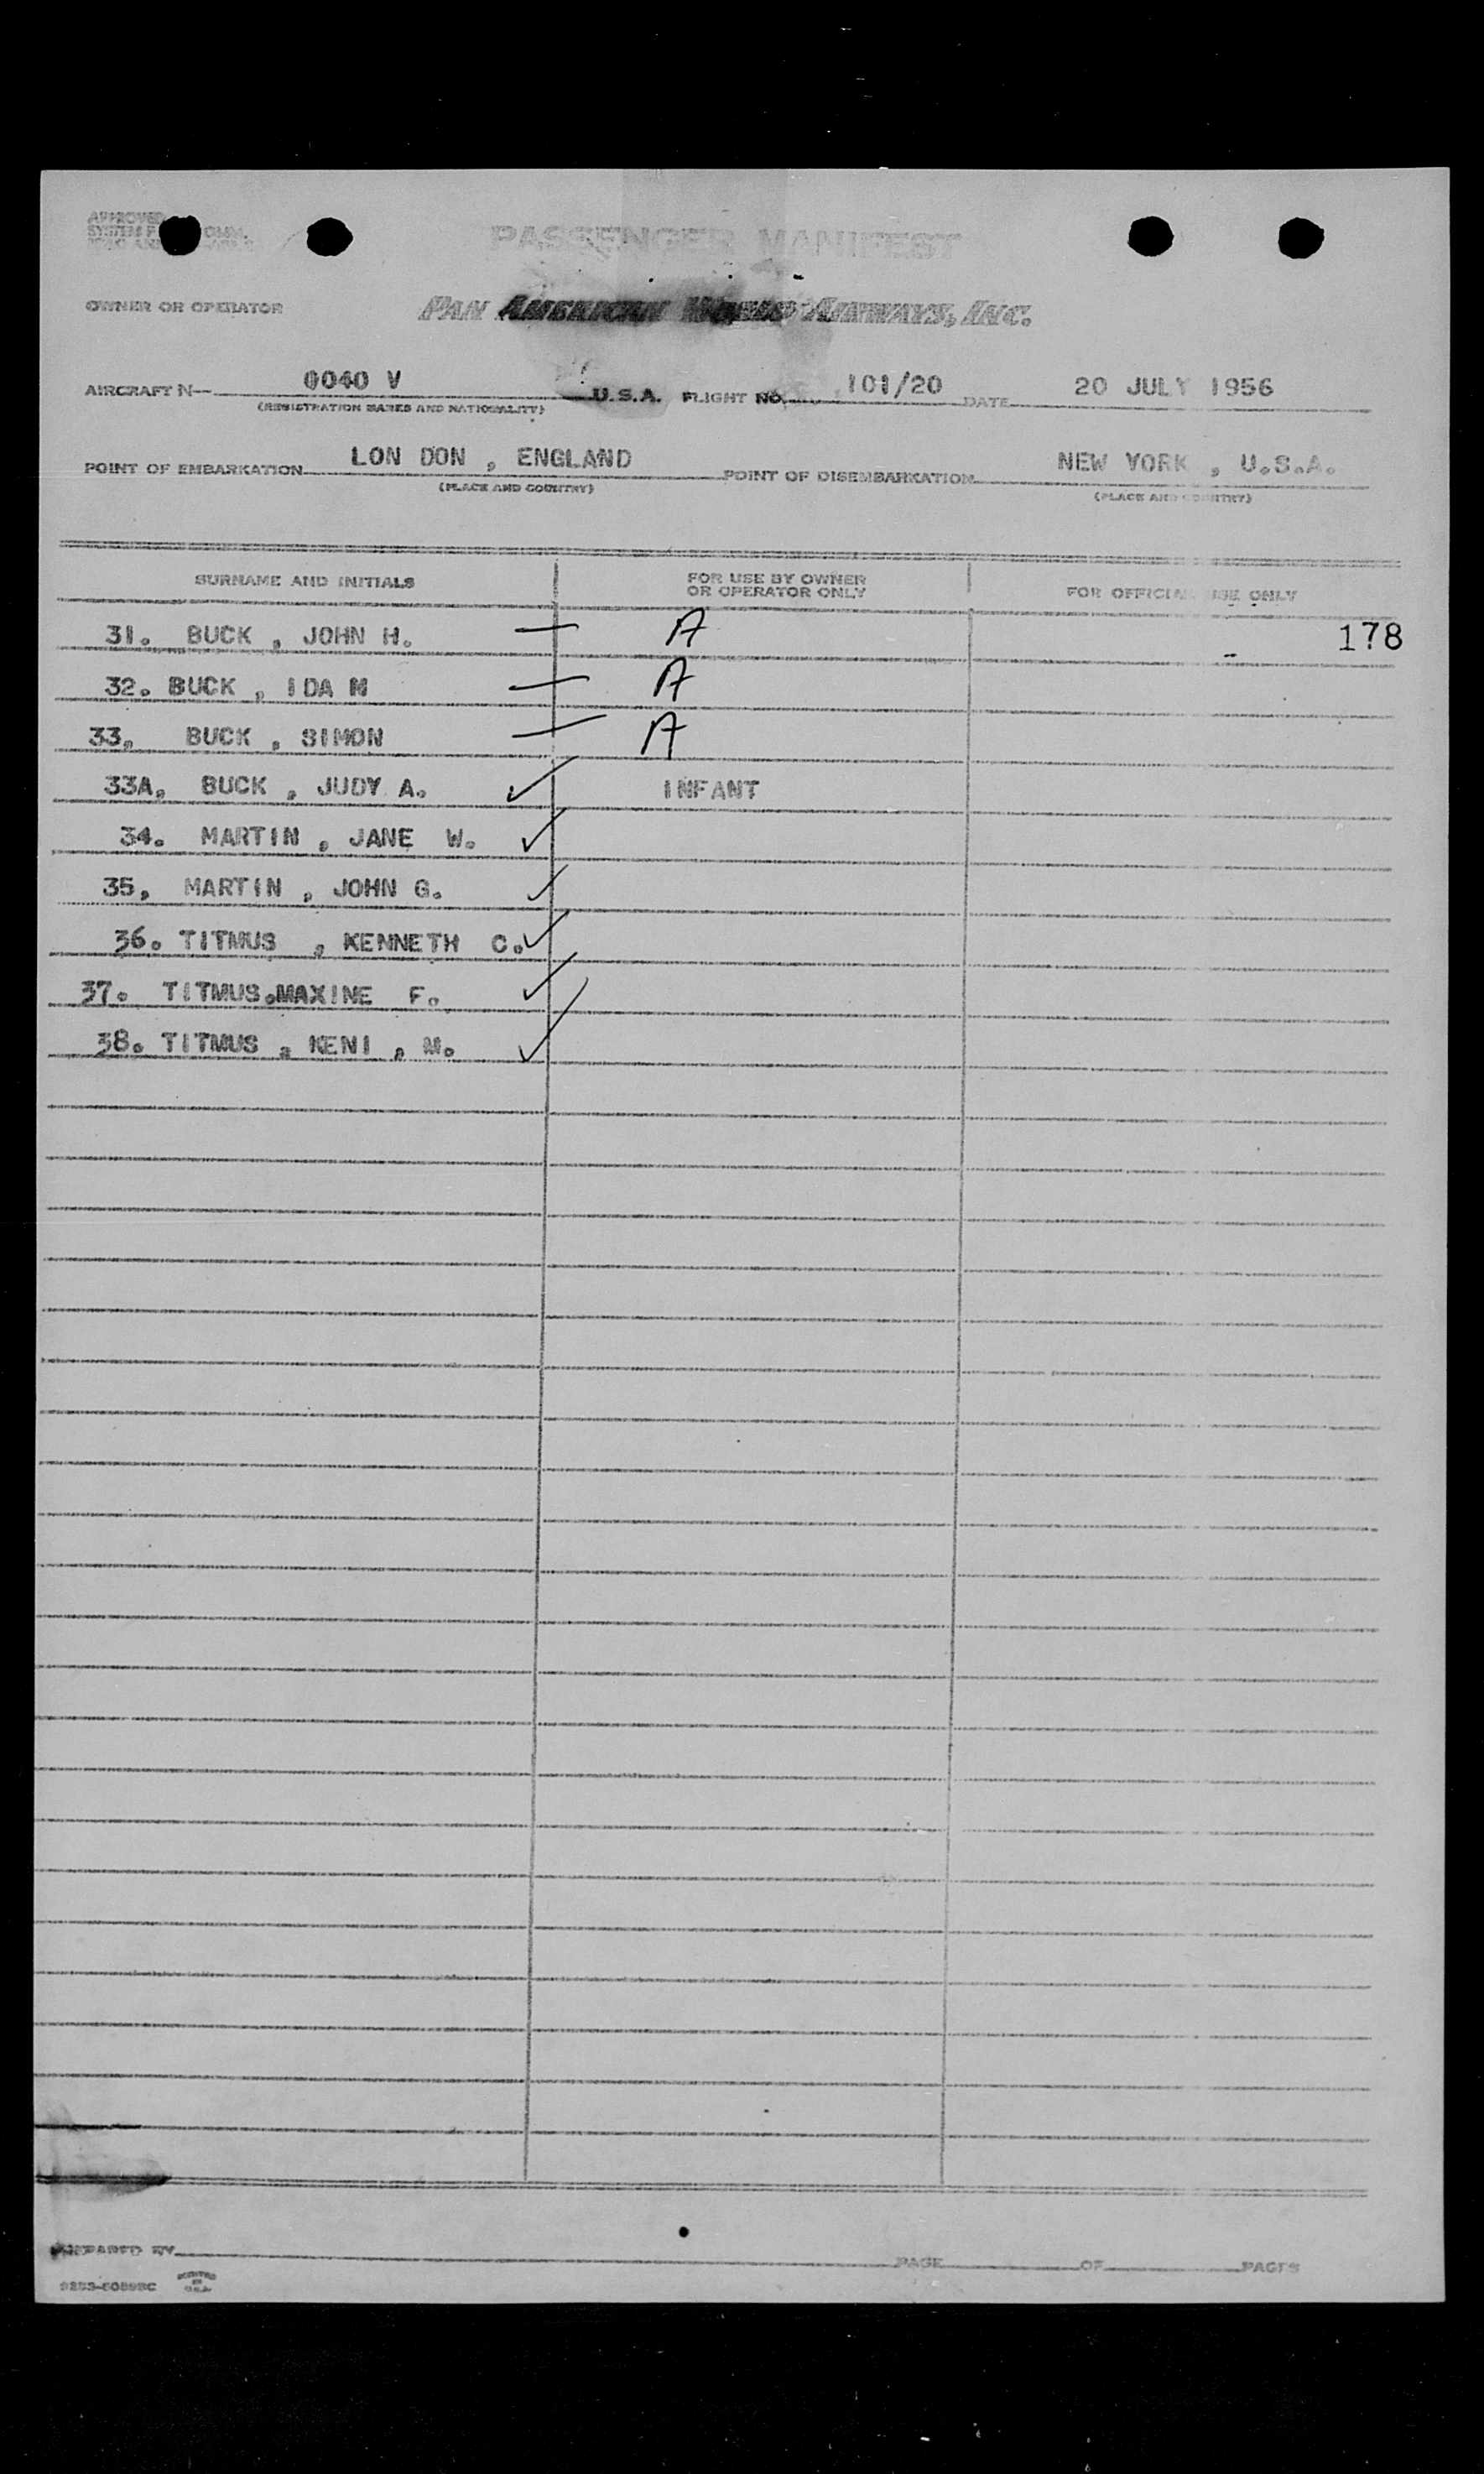 APPROVED
PASSENGER MANIFEST
OWNER OR OPERATOR PAN AMERICAN WORLD AIRWAYS, INC.
AIRCRAFT N— 0040 V U.S.A. FLIGHT NO. 101/20 DATE 20 JULY 1956
(REGISTRATION MARKS AND NATIONALITY)
POINT OF EMBARKATION LON DON , ENGLAND POINT OF DISEMBARKATION NEW YORK , U.S.A.
(PLACE AND COUNTRY) (PLACE AND COUNTRY)
SURNAME AND INITIALS FOR USE BY OWNER OR OPERATOR ONLY FOR OFFICIAL USE ONLY
31. BUCK , JOHN H. — A 178
32. BUCK , IDA M — A
33, BUCK , SIMON — A
33A, BUCK , JUDY A. ✓ INFANT
34. MARTIN , JANE W. ✓
35, MARTIN , JOHN G. ✓
36. TITMUS , KENNETH C. ✓
37. TITMUS.MAXINE F. ✓
38. TITMUS , KENI , M. ✓
PREPARED BY PAGE OF PAGES
PRINTED IN U.S.A.